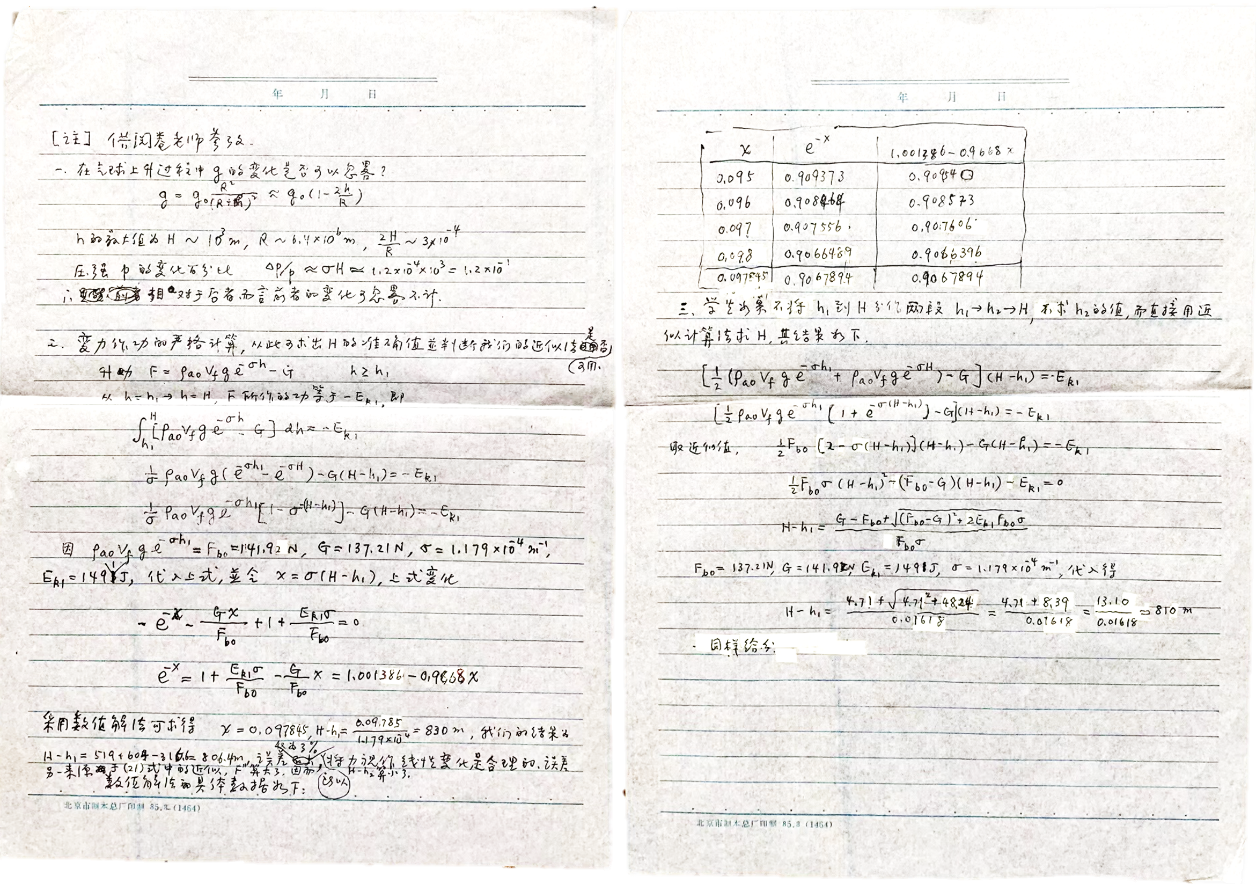 年 月 日
[注] 供阅卷老师参考.
一. 在气球上升过程中 g 的变化是否可以忽略?
g = g₀ R²/(R+h)² ≈ g₀(1-2h/R)
h 的最大值为 H ~ 10³m, R ~ 6.4×10⁶m, 2H/R ~ 3×10⁻⁴
压强 p 的变化百分比 ΔP/p ≈ σH ≈ 1.2×10⁻⁴×10³ = 1.2×10⁻¹
∴ 相对于后者而言前者的变化可忽略不计.
二. 变力作功的严格计算, 从此可求出 H 的准确值並判断我们的近似法是否
可用.
F = ρa₀Vf g e^-σh - G h ≥ h₁
从 h=h₁→h=H, F 所作的功等于 -Ek₁, 即
∫h₁^H [ρa₀Vf g e^-σh - G] dh = -Ek₁
1/σ ρa₀Vf g(e^-σh₁ - e^-σH) - G(H-h₁) = -Ek₁
1/σ ρa₀Vf g e^-σh₁[1 - σ^-(H-h₁)] - G(H-h₁) = -Ek₁
因 ρa₀Vf g e^-σh₁ = Fb₀ = 141.92 N, G = 137.21N, σ = 1.179×10⁻⁴ m⁻¹,
Ek₁ = 1498J, 代入上式, 並令 x = σ(H-h₁), 上式变化
- e^-x - Gx/Fb₀ + 1 + Ek₁σ/Fb₀ = 0
e^-x = 1 + Ek₁σ/Fb₀ - G/Fb₀ x = 1.001386 - 0.9668x
采用数值解法可求得 x = 0.097845, H-h₁ = 0.09785/1.179×10⁻⁴ = 830 m, 我们的结果为
H-h₁ = 519+604-316.6 = 806.4m, 误差仅为3%, 将力视作线性变化是合理的. 误差
另一来源于(21)式中的近似, F算大了, 因而 H-h₂ 算小了.
数值解法的具体数据如下:
北京市制本总厂印制 85.π(1464)
年 月 日
x e^-x 1.001386-0.9668x
0.095 0.909373 0.909540
0.096 0.908464 0.908573
0.097 0.907556 0.907606
0.098 0.9066489 0.9066396
0.097845 0.9067894 0.9067894
三. 学生如果不将 h₁ 到 H 分作两段 h₁→h₂→H, 不求 h₂ 的值, 而直接用近
似计算法求 H, 其结果如下.
[1/2(ρa₀Vf g e^-σh₁ + ρa₀Vf g e^-σH) - G](H-h₁) = -Ek₁
[1/2 ρa₀Vf g e^-σh₁(1+e^-σ(H-h₁)) - G](H-h₁) = -Ek₁
取近似值, 1/2 Fb₀[2-σ(H-h₁)](H-h₁) - G(H-h₁) = -Ek₁
1/2 Fb₀σ(H-h₁)² - (Fb₀-G)(H-h₁) - Ek₁ = 0
H-h₁ = G-Fb₀+√((Fb₀-G)²+2Ek₁Fb₀σ)/Fb₀σ
Fb₀ = 137.21N, G = 141.92N, Ek₁ = 1498J, σ = 1.179×10⁻⁴m⁻¹, 代入得
H-h₁ = 4.71+√(4.71²+48.24)/0.01618 = 4.71+8.39/0.01618 = 13.10/0.01618 = 810 m
同样给分
北京市制本总厂印制 85.π(1464)